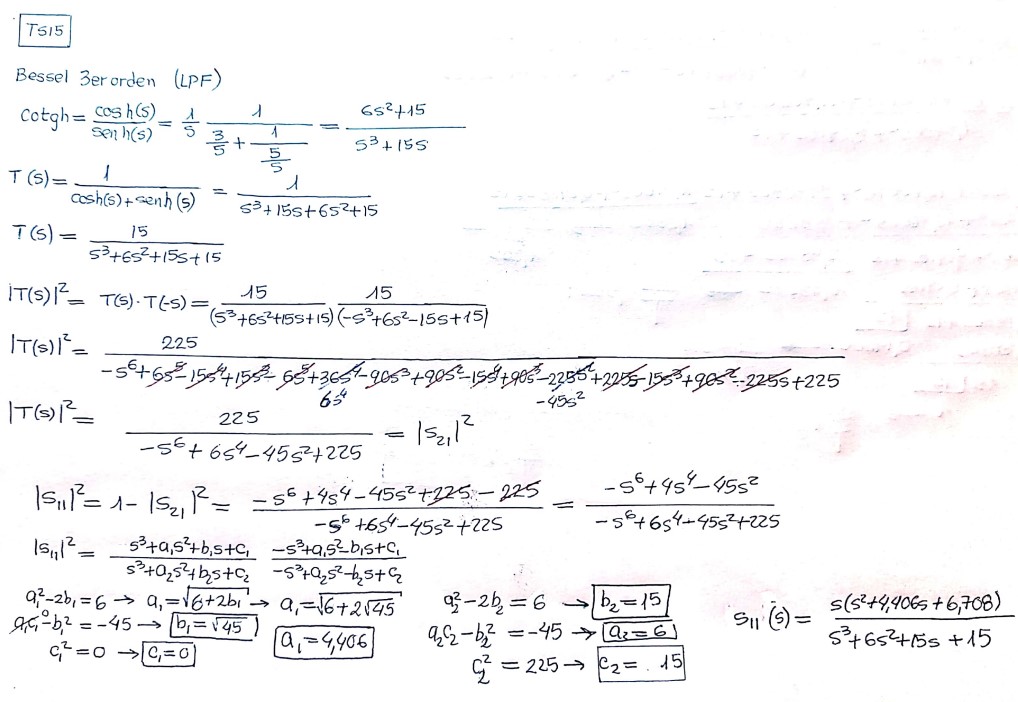 TS15
Bessel 3er orden (LPF)
cotgh = cosh(s)/senh(s) = 1/s 1/(3/s + 1/(5/s)) = (6s²+15)/(s³+15s)
T(s) = 1/(cosh(s)+senh(s)) = 1/(s³+15s+6s²+15)
T(s) = 15/(s³+6s²+15s+15)
|T(s)|² = T(s)·T(-s) = 15/(s³+6s²+15s+15) 15/(-s³+6s²-15s+15)
|T(s)|² = 225/(-s⁶+6s⁵-15s⁴+15s³-6s⁵+36s⁴-90s³+90s²-15s⁴+90s³-225s²+225s-15s³+90s²-225s+225)
6s⁴ -45s²
|T(s)|² = 225/(-s⁶+6s⁴-45s²+225) = |S₂₁|²
|S₁₁|² = 1-|S₂₁|² = (-s⁶+4s⁴-45s²+225-225)/(-s⁶+6s⁴-45s²+225) = (-s⁶+4s⁴-45s²)/(-s⁶+6s⁴-45s²+225)
|S₁₁|² = (s³+a₁s²+b₁s+c₁)/(s³+a₂s²+b₂s+c₂) (-s³+a₁s²-b₁s+c₁)/(-s³+a₂s²-b₂s+c₂)
a₁²-2b₁=6 → a₁=√(6+2b₁) → a₁=√(6+2√45) a₂²-2b₂=6 → b₂=15
a₁c₁-b₁²=-45 → b₁=√45 a₁=4,406 a₂c₂-b₂²=-45 → a₂=6
c₁²=0 → c₁=0 c₂²=225 → c₂=.15
S₁₁(s) = s(s²+4,406s+6,708)/(s³+6s²+15s+15)